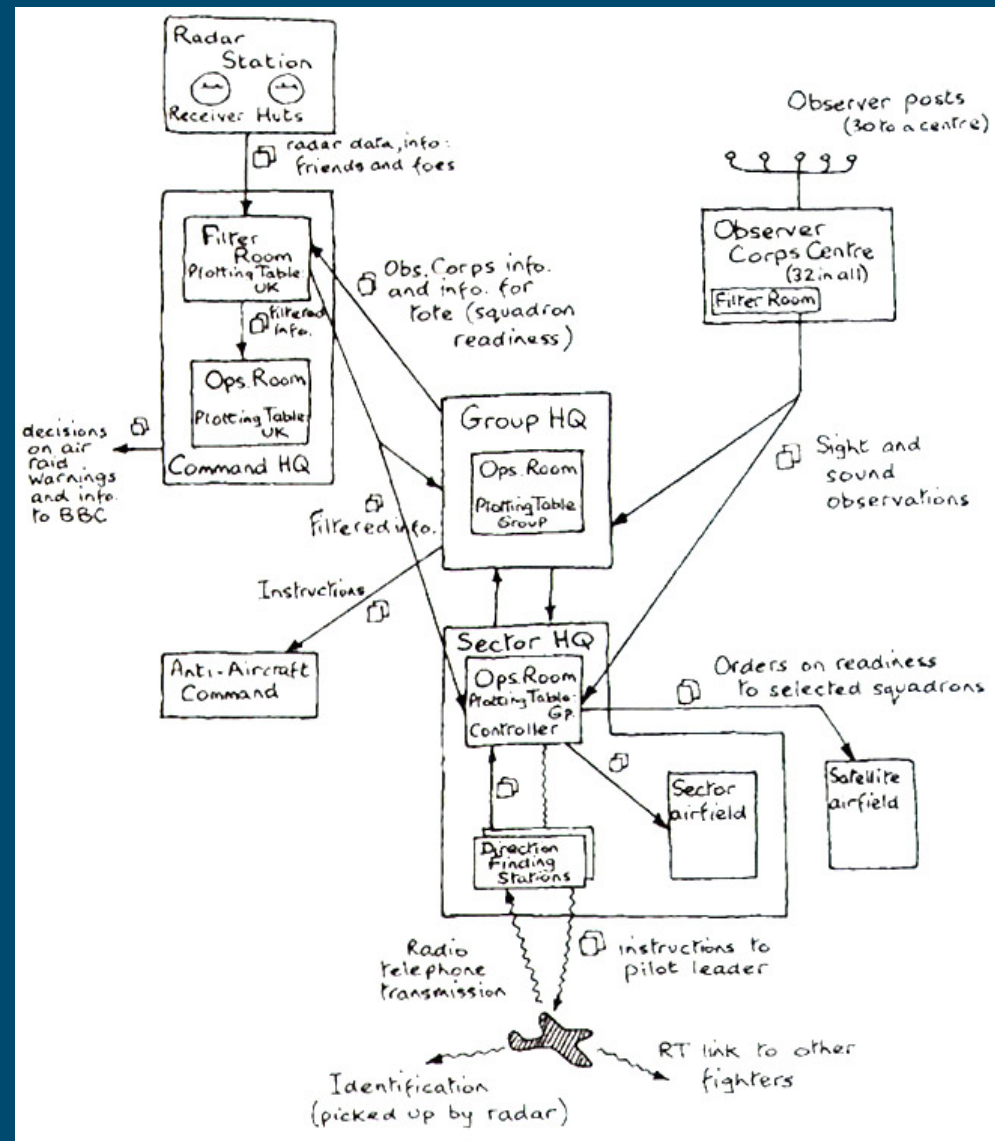 Radar
Station
Receiver Huts
radar data, info:
friends and foes
Observer posts
(30 to a centre)
Filter
Room
Plotting Table
UK
Filtered
info.
Ops. Room
Plotting Table
UK
Command HQ
decisions
on air
raid
warnings
and info.
to BBC
Obs. Corps info.
and info. for
tote (squadron
readiness)
Observer
Corps Centre
(32 in all)
Filter Room
Group HQ
Ops. Room
Plotting Table
Group
Sight and
sound
observations
Filtered info.
Instructions
Anti-Aircraft
Command
Sector HQ
Ops. Room
Plotting Table-
Gp.
Controller
Orders on readiness
to selected squadrons
Sector
airfield
Satellite
airfield
Direction
Finding
Stations
Radio
telephone
transmission
instructions to
pilot leader
Identification
(picked up by radar)
RT link to other
fighters